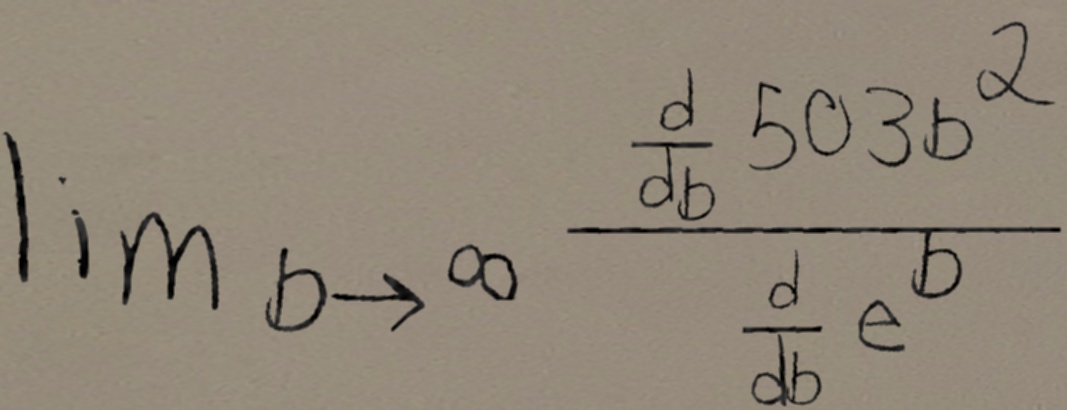 \lim_{b \to \infty} \frac{\frac{d}{db} 503b^2}{\frac{d}{db} e^b}